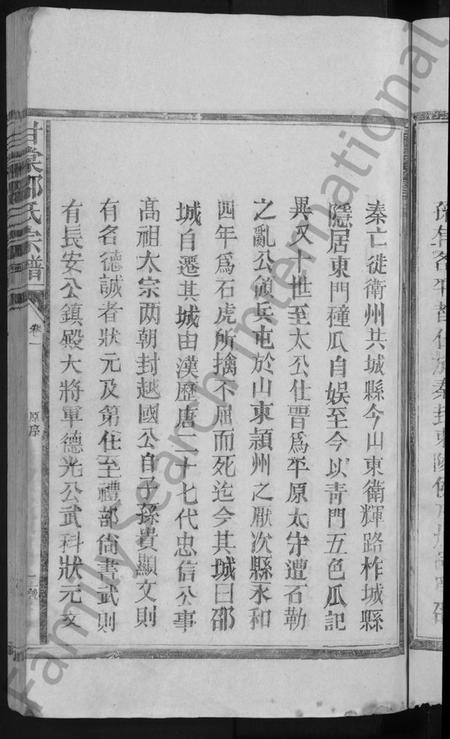 秦亡徙衛州共城縣今山東衛輝路柞城縣
隱居東門種瓜自娛至今以青門五色瓜記
異又十世至太公仕晉爲平原太守遭石勒
之亂公領兵屯於山東穎州之厭次縣永和
四年爲石虎所擒不屈而死迄今其城曰邵
城自遷其城由漢歷唐二十七代忠信公事
高祖太宗两朝封越國公自子孫貴顯文則
有名德誠者狀元及第任至禮部尙書武則
有長安公鎮殿大將軍德光公武科狀元文
甘棠邵氏宗譜
卷一
原序
FamilySearch International